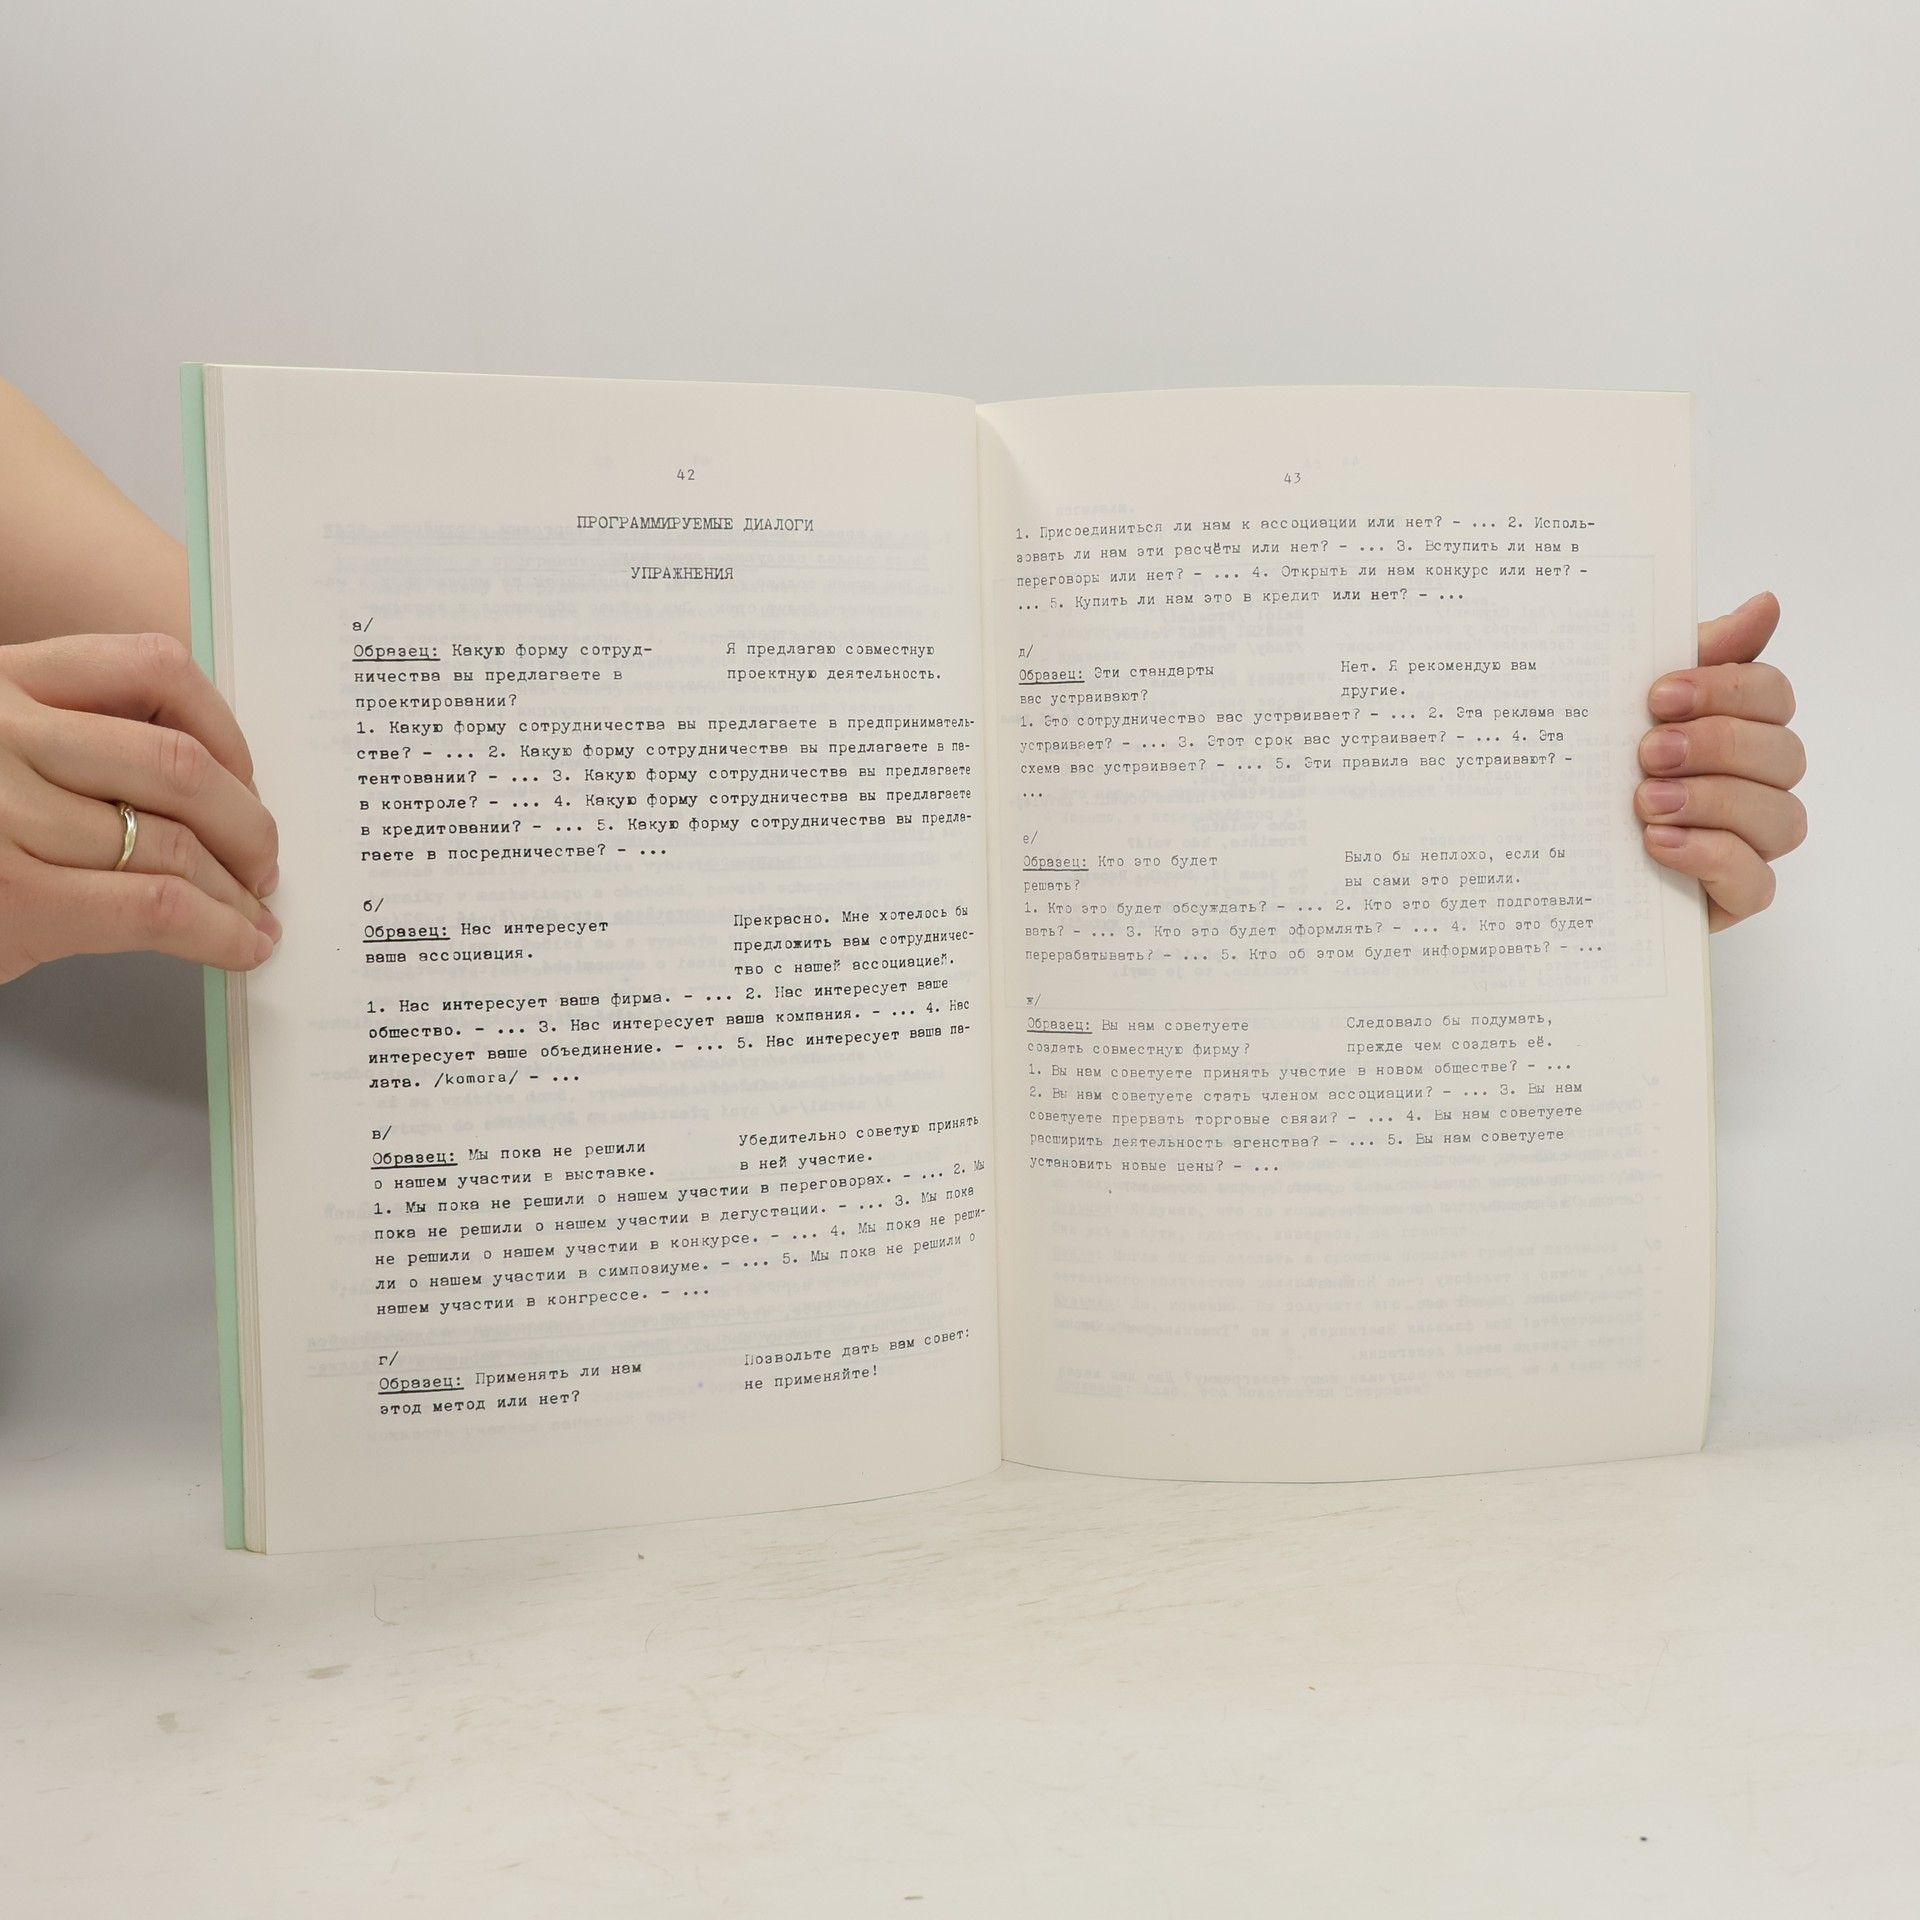 42
ПРОГРАММИРУЕМЫЕ ДИАЛОГИ
УПРАЖНЕНИЯ
а/
Образец: Какую форму сотруд-
ничества вы предлагаете в
проектировании?
Я предлагаю совместную
проектную деятельность.
1. Какую форму сотрудничества вы предлагаете в предприниматель-
стве? - ... 2. Какую форму сотрудничества вы предлагаете в па-
тентовании? - ... 3. Какую форму сотрудничества вы предлагаете
в контроле? - ... 4. Какую форму сотрудничества вы предлагаете
в кредитовании? - ... 5. Какую форму сотрудничества вы предла-
гаете в посредничестве? - ...
б/
Образец: Нас интересует
ваша ассоциация.
Прекрасно. Мне хотелось бы
предложить вам сотрудничес-
тво с нашей ассоциацией.
1. Нас интересует ваша фирма. - ... 2. Нас интересует ваше
общество. - ... 3. Нас интересует ваша компания. - ... 4. Нас
интересует ваше объединение. - ... 5. Нас интересует ваша па-
лата. /komora/ - ...
в/
Образец: Мы пока не решили
о нашем участии в выставке.
Убедительно советую принять
в ней участие.
1. Мы пока не решили о нашем участии в переговорах. - ... 2. Мы
пока не решили о нашем участии в дегустации. - ... 3. Мы пока
не решили о нашем участии в конкурсе. - ... 4. Мы пока не реши-
ли о нашем участии в симпозиуме. - ... 5. Мы пока не решили о
нашем участии в конгрессе. - ...
г/
Образец: Применять ли нам
этод метод или нет?
Позвольте дать вам совет:
не применяйте!
43
1. Присоединиться ли нам к ассоциации или нет? - ... 2. Исполь-
зовать ли нам эти расчёты или нет? - ... 3. Вступить ли нам в
переговоры или нет? - ... 4. Открыть ли нам конкурс или нет? -
... 5. Купить ли нам это в кредит или нет? - ...
д/
Образец: Эти стандарты
вас устраивают?
Нет. Я рекомендую вам
другие.
1. Это сотрудничество вас устраивает? - ... 2. Эта реклама вас
устраивает? - ... 3. Этот срок вас устраивает? - ... 4. Эта
схема вас устраивает? - ... 5. Эти правила вас устраивают? -
...
е/
Образец: Кто это будет
решать?
Было бы неплохо, если бы
вы сами это решили.
1. Кто это будет обсуждать? - ... 2. Кто это будет подготавли-
вать? - ... 3. Кто это будет оформлять? - ... 4. Кто это будет
перерабатывать? - ... 5. Кто об этом будет информировать? - ...
ж/
Образец: Вы нам советуете
создать совместную фирму?
Следовало бы подумать,
прежде чем создать её.
1. Вы нам советуете принять участие в новом обществе? - ...
2. Вы нам советуете стать членом ассоциации? - ... 3. Вы нам
советуете прервать торговые связи? - ... 4. Вы нам советуете
расширить деятельность агенства? - ... 5. Вы нам советуете
установить новые цены? - ...